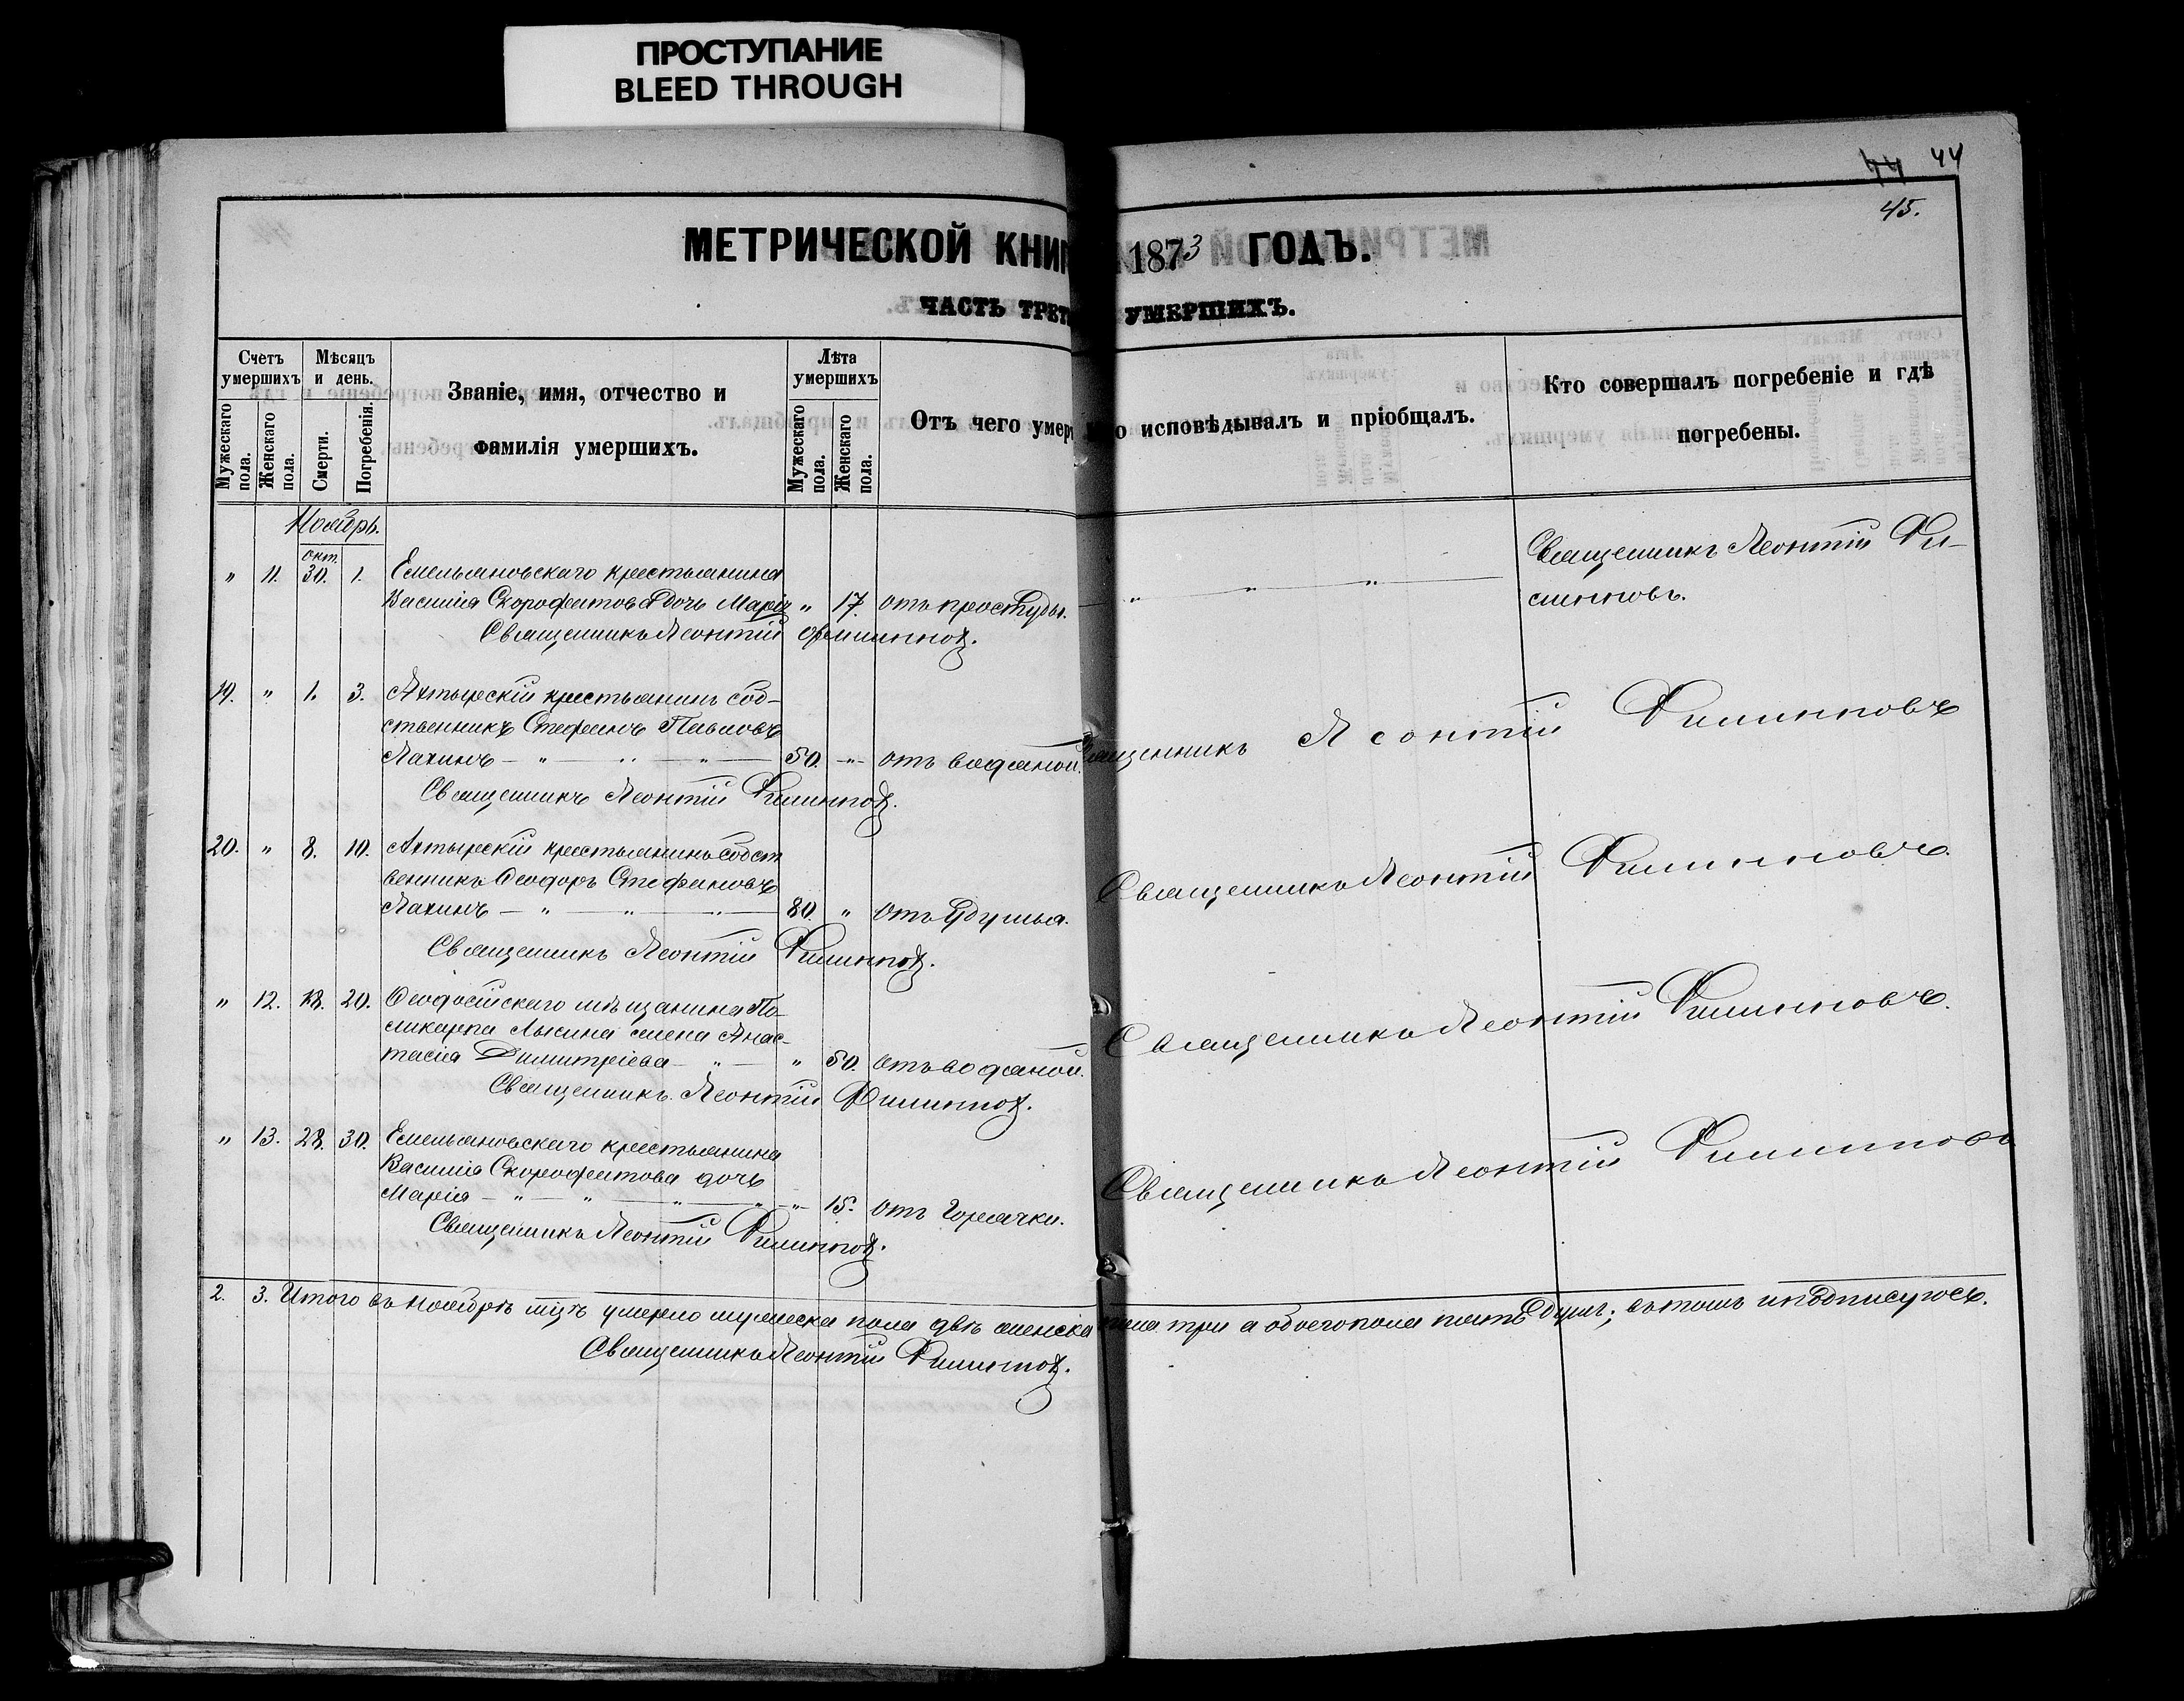 ПРОСТУПАНИЕ
BLEED THROUGH
44 44
45.
МЕТРИЧЕСКОЙ КНИГ 1873 ГОДЪ.
ЧАСТЬ ТРЕТ УМЕРШИХЪ.
Счетъ умершихъ
Мужескаго пола.
Женскаго пола.
Мѣсяцъ и день.
Смерти.
Погребенія.
Званіе, имя, отчество и
фамилія умершихъ.
Лѣта умершихъ
Мужескаго пола.
Женскаго пола.
Отъ чего умер о исповѣдывалъ и пріобщалъ.
Кто совершалъ погребеніе и гдѣ
погребены.
Ноябрь.
окт.
" 11. 30. 1. Емельяновскаго крестьянина Священникъ Леонтій Фи-
Василія Скорофеитова дочь Марія " 17. отъ простуды. — " — " — липповъ.
Священникъ Леонтій Филипповъ.
19. " 1. 3. Ахтырскій крестьянинъ соб-
ственникъ Стефанъ Павловъ
Лахинъ — " — " — " — 50. -"- отъ водяной. Священникъ Леонтій Филипповъ
Священникъ Леонтій Филипповъ.
20. " 8. 10. Ахтырскій крестьянинъ собст
венникъ Ѳеодоръ Стефановъ
Лахинъ — " — " — " — 80. " отъ удушья. Священникъ Леонтій Филипповъ.
Священникъ Леонтій Филипповъ.
" 12. 18. 20. Ѳеодосійскаго мѣщанина По-
ликарпа Лысина жена Анас-
тасія Димитріева — " — " 50. отъ водяной. Священникъ Леонтій Филипповъ.
Священникъ Леонтій Филипповъ.
" 13. 28. 30. Емельяновскаго крестьянина
Василія Скорофеитова дочь
Марія — " — " — " — " — -"- 15. отъ горячки. Священникъ Леонтій Филипповъ
Священникъ Леонтій Филипповъ.
2. 3. Итого въ ноябрѣ мцѣ умерло мужеска пола двѣ женска пола три а обоего пола пять душъ; въ томъ и подписуюсь.
Священникъ Леонтій Филипповъ.